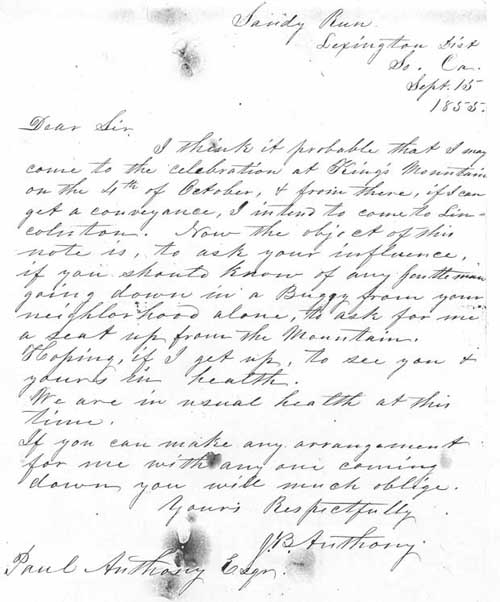 Sandy Run
Lexington Dist
So. Ca.
Sept. 15
1855.
Dear Sir
I think it probable that I may
come to the celebration at King's Mountain
on the 4th of October, & from there, if I can
get a conveyance, I intend to come to Lin-
colnton. Now the object of this
note is, to ask your influence,
if you should know of any gentleman
going down in a Buggy from your
neighborhood alone, to ask for me
a seat up from the Mountain.
Hoping, if I get up, to see you &
yours in health.
We are in usual health at this
time.
If you can make any arrangement
for me with any one coming
down you will much oblige.
Yours Respectfully
J. B. Anthony.
Paul Anthony Esqr.